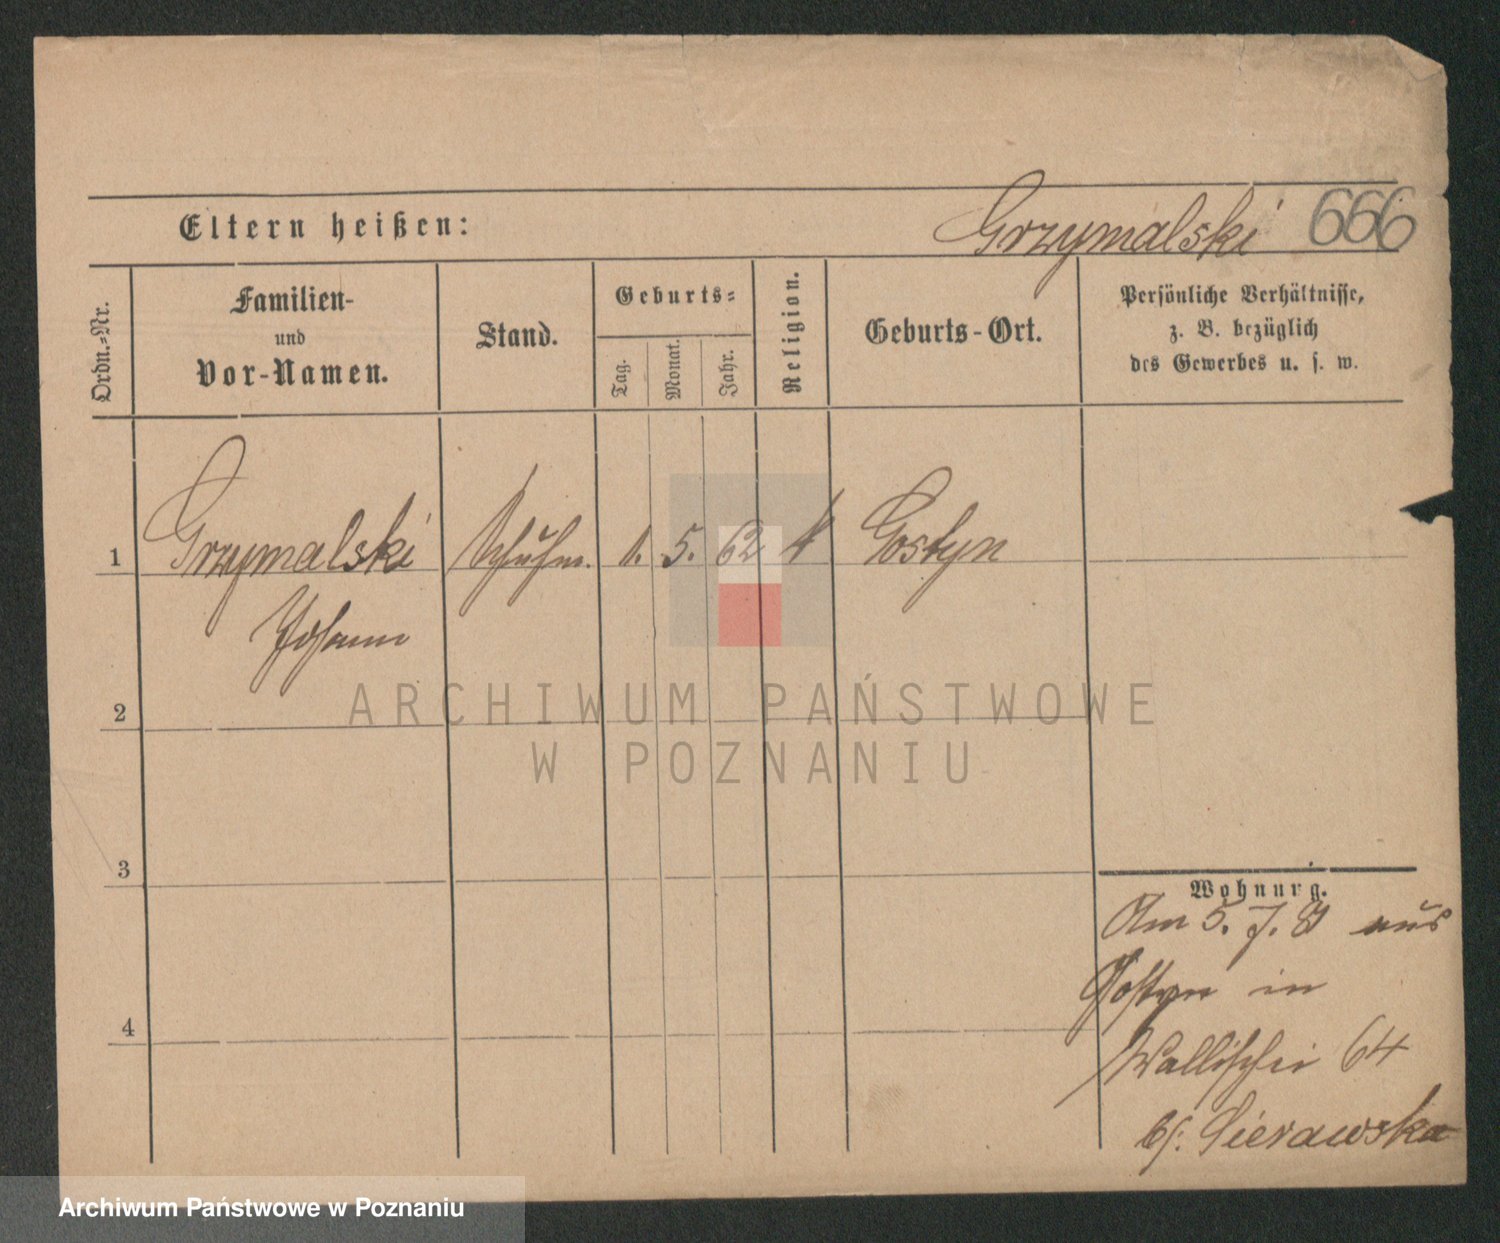 Eltern heißen:
Grzymalski 666
Ordn.-Nr.
Familien-
und
Vor-Namen.
Stand.
Geburts-
Tag.
Monat.
Jahr.
Religion.
Geburts-Ort.
Persönliche Verhältnisse,
z. B. bezüglich
des Gewerbes u. s. w.
1 Grzymalski Schuhm. 1. 5. 62 k Gostyn
Johann
2
3
4
Wohnung.
Am 5. 7. 81 aus
Gostyn in
Wallischei 64
bei Sierawska
ARCHIWUM PAŃSTWOWE
W POZNANIU
Archiwum Państwowe w Poznaniu